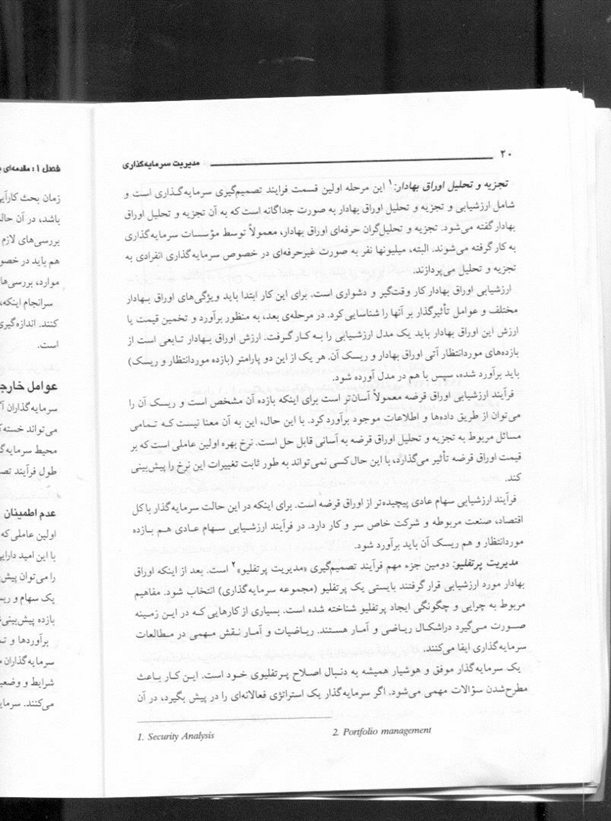 ۲۰ مدیریت سرمایه‌گذاری
تجزیه و تحلیل اوراق بهادار:۱ این مرحله اولین قسمت فرایند تصمیم‌گیری سرمایه‌گذاری است و
شامل ارزشیابی و تجزیه و تحلیل اوراق بهادار به صورت جداگانه است که به آن تجزیه و تحلیل اوراق
بهادار گفته می‌شود. تجزیه و تحلیل‌گران حرفه‌ای اوراق بهادار، معمولاً توسط مؤسسات سرمایه‌گذاری
به کار گرفته می‌شوند. البته، میلیونها نفر به صورت غیرحرفه‌ای در خصوص سرمایه‌گذاری انفرادی به
تجزیه و تحلیل می‌پردازند.
ارزشیابی اوراق بهادار کار وقت‌گیر و دشواری است. برای این کار ابتدا باید ویژگی‌های اوراق بهادار
مختلف و عوامل تأثیرگذار بر آنها را شناسایی کرد. در مرحله‌ی بعد، به منظور برآورد و تخمین قیمت یا
ارزش این اوراق بهادار باید یک مدل ارزشیابی را به کار گرفت. ارزش اوراق بهادار تابعی است از
بازده‌های موردانتظار آتی اوراق بهادار و ریسک آن. هر یک از این دو پارامتر (بازده موردانتظار و ریسک)
باید برآورد شده، سپس با هم در مدل آورده شود.
فرآیند ارزشیابی اوراق قرضه معمولاً آسان‌تر است برای اینکه بازده آن مشخص است و ریسک آن را
می‌توان از طریق داده‌ها و اطلاعات موجود برآورد کرد. با این حال، این به آن معنا نیست که تمامی
مسائل مربوط به تجزیه و تحلیل اوراق قرضه به آسانی قابل حل است. نرخ بهره اولین عاملی است که بر
قیمت اوراق قرضه تأثیر می‌گذارد، با این حال کسی نمی‌تواند به طور ثابت تغییرات این نرخ را پیش‌بینی
کند.
فرآیند ارزشیابی سهام عادی پیچیده‌تر از اوراق قرضه است. برای اینکه در این حالت سرمایه‌گذار با کل
اقتصاد، صنعت مربوطه و شرکت خاص سر و کار دارد. در فرآیند ارزشیابی سهام عادی هم بازده
موردانتظار و هم ریسک آن باید برآورد شود.
مدیریت پرتفلیو: دومین جزء مهم فرآیند تصمیم‌گیری «مدیریت پرتفلیو»۲ است. بعد از اینکه اوراق
بهادار مورد ارزشیابی قرار گرفتند بایستی یک پرتفلیو (مجموعه سرمایه‌گذاری) انتخاب شود. مفاهیم
مربوط به چرایی و چگونگی ایجاد پرتفلیو شناخته شده است. بسیاری از کارهایی که در این زمینه
صورت می‌گیرد در اشکال ریاضی و آمار هستند. ریاضیات و آمار نقش مهمی در مطالعات
سرمایه‌گذاری ایفا می‌کنند.
یک سرمایه‌گذار موفق و هوشیار همیشه به دنبال اصلاح پرتفلیوی خود است. این کار باعث
مطرح‌شدن سؤالات مهمی می‌شود. اگر سرمایه‌گذار یک استراتژی فعالانه‌ای را در پیش بگیرد، در آن
1. Security Analysis 2. Portfolio management
فصل ۱: مقدمه‌ای
زمان بحث کارآیی
باشد، در آن حالت
بررسی‌های لازم
هم باید در خصوص
موارد، بررسی‌های
سرانجام اینکه،
کنند. اندازه‌گیری
است.
عوامل خارجی
سرمایه‌گذاران
می‌تواند خسته
محیط سرمایه‌گذاری
طول فرآیند
عدم اطمینان
اولین عاملی که
با این امید دارایی
را می‌توان پیش
یک سهام و ریسک
بازده پیش‌بینی
برآوردها و
سرمایه‌گذاران
شرایط و وضعیت
می‌کنند. سرمایه